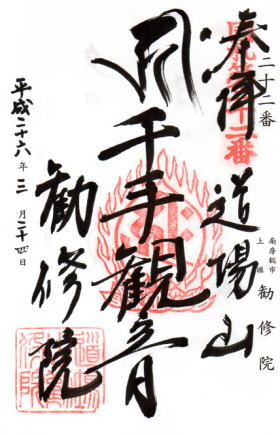 二十二番
奉拝
南房総市
上堀
勧修院
道場山
千手観音
勧修院
平成二十六年三月二十四日